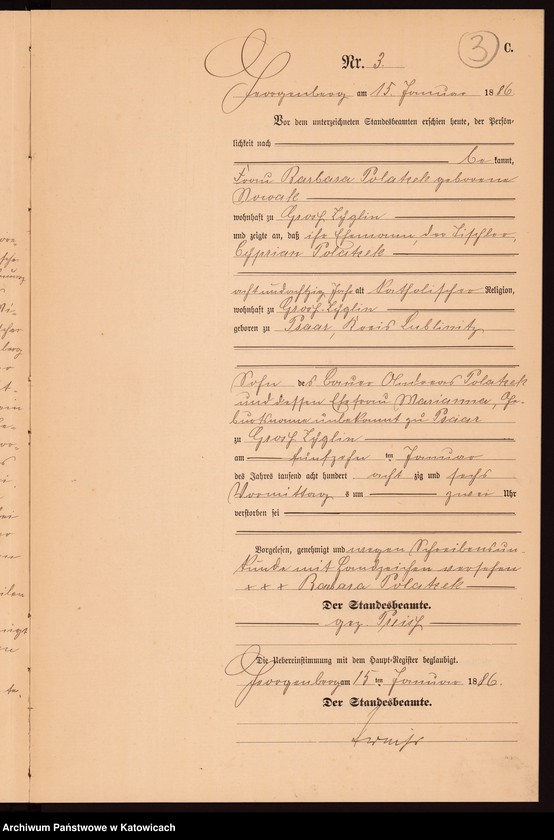 3
C.
Nr. 3.
Georgenberg am 15. Januar 1886
Vor dem unterzeichneten Standesbeamten erschien heute, der Persön-
lichkeit nach
bekannt,
Frau Barbara Polatzek geborene
Nowak
wohnhaft zu Groß Zyglin
und zeigte an, daß ihr Ehemann, der Tischler,
Cyprian Polatzek
achtundachtzig Jahr alt Katholischer Religion,
wohnhaft zu Groß Zyglin
geboren zu Psaar, Kreis Lublinitz
Sohn des Bauer Andreas Polatzek
und dessen Ehefrau Marianna, Ge-
burtsname unbekannt zu Psaar
zu Groß Zyglin
am fünfzehn ten Januar
des Jahres tausend acht hundert achtzig und sechs
Vormittags um zwei Uhr
verstorben sei
Vorgelesen, genehmigt und wegen Schreibensun-
kunde mit Handzeichen versehen
+ + + Barbara Polatzek
Der Standesbeamte.
gez.
Die Uebereinstimmung mit dem Haupt-Register beglaubigt.
Georgenberg am 15 ten Januar 1886.
Der Standesbeamte.
Archiwum Państwowe w Katowicach